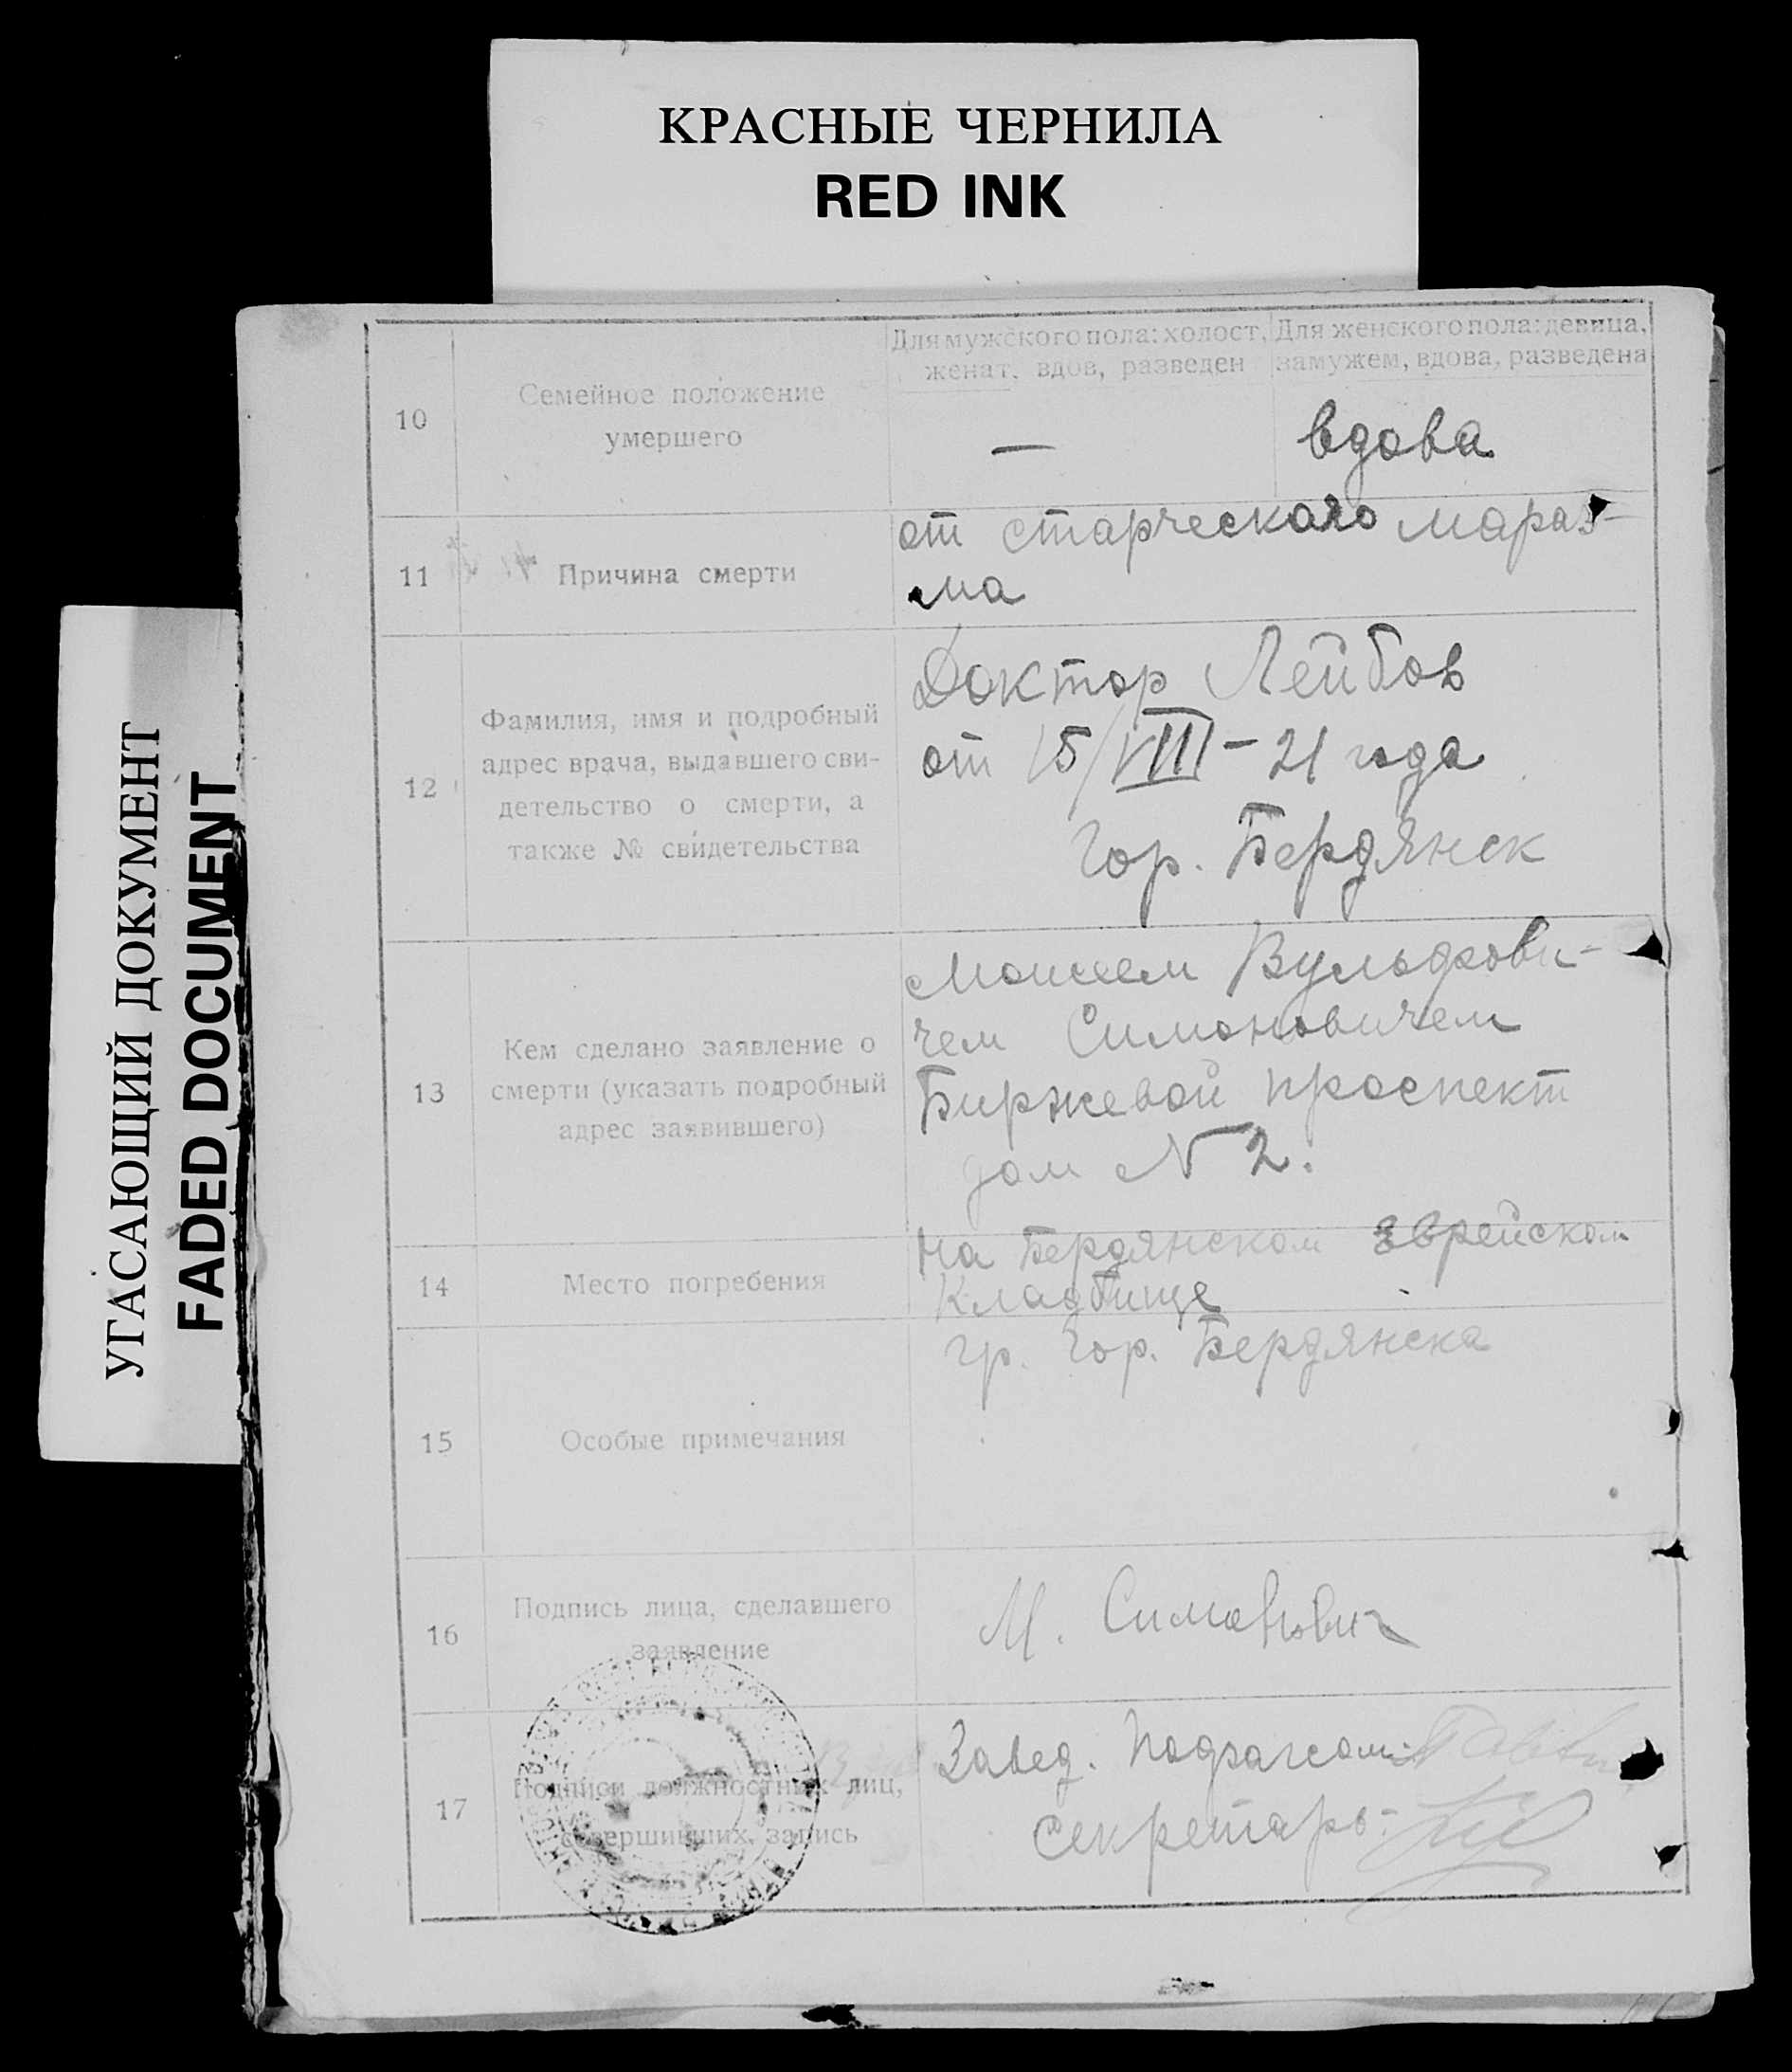 КРАСНЫЕ ЧЕРНИЛА
RED INK
УГАСАЮЩИЙ ДОКУМЕНТ
FADED DOCUMENT
10
Семейное положение
умершего
Для мужского пола: холост,
женат, вдов, разведен
—
Для женского пола: девица,
замужем, вдова, разведена
вдова
11
Причина смерти
от старческаго мараз-
ма
12
Фамилия, имя и подробный
адрес врача, выдавшего сви-
детельство о смерти, а
также № свидетельства
Доктор Лейбов
от 15/VIII - 21 года
Гор. Бердянск
13
Кем сделано заявление о
смерти (указать подробный
адрес заявившего)
Моисеем Вульфови-
чем Симоновичем
Биржевой проспект
дом N 2.
14
Место погребения
на Бердянском Еврейском
Кладбище
15
Особые примечания
гр. Гор. Бердянска
16
Подпись лица, сделавшего
заявление
М. Симонович
17
Подписи должностных лиц,
совершивших запись
Завед. Подзагсом
Секретарь: